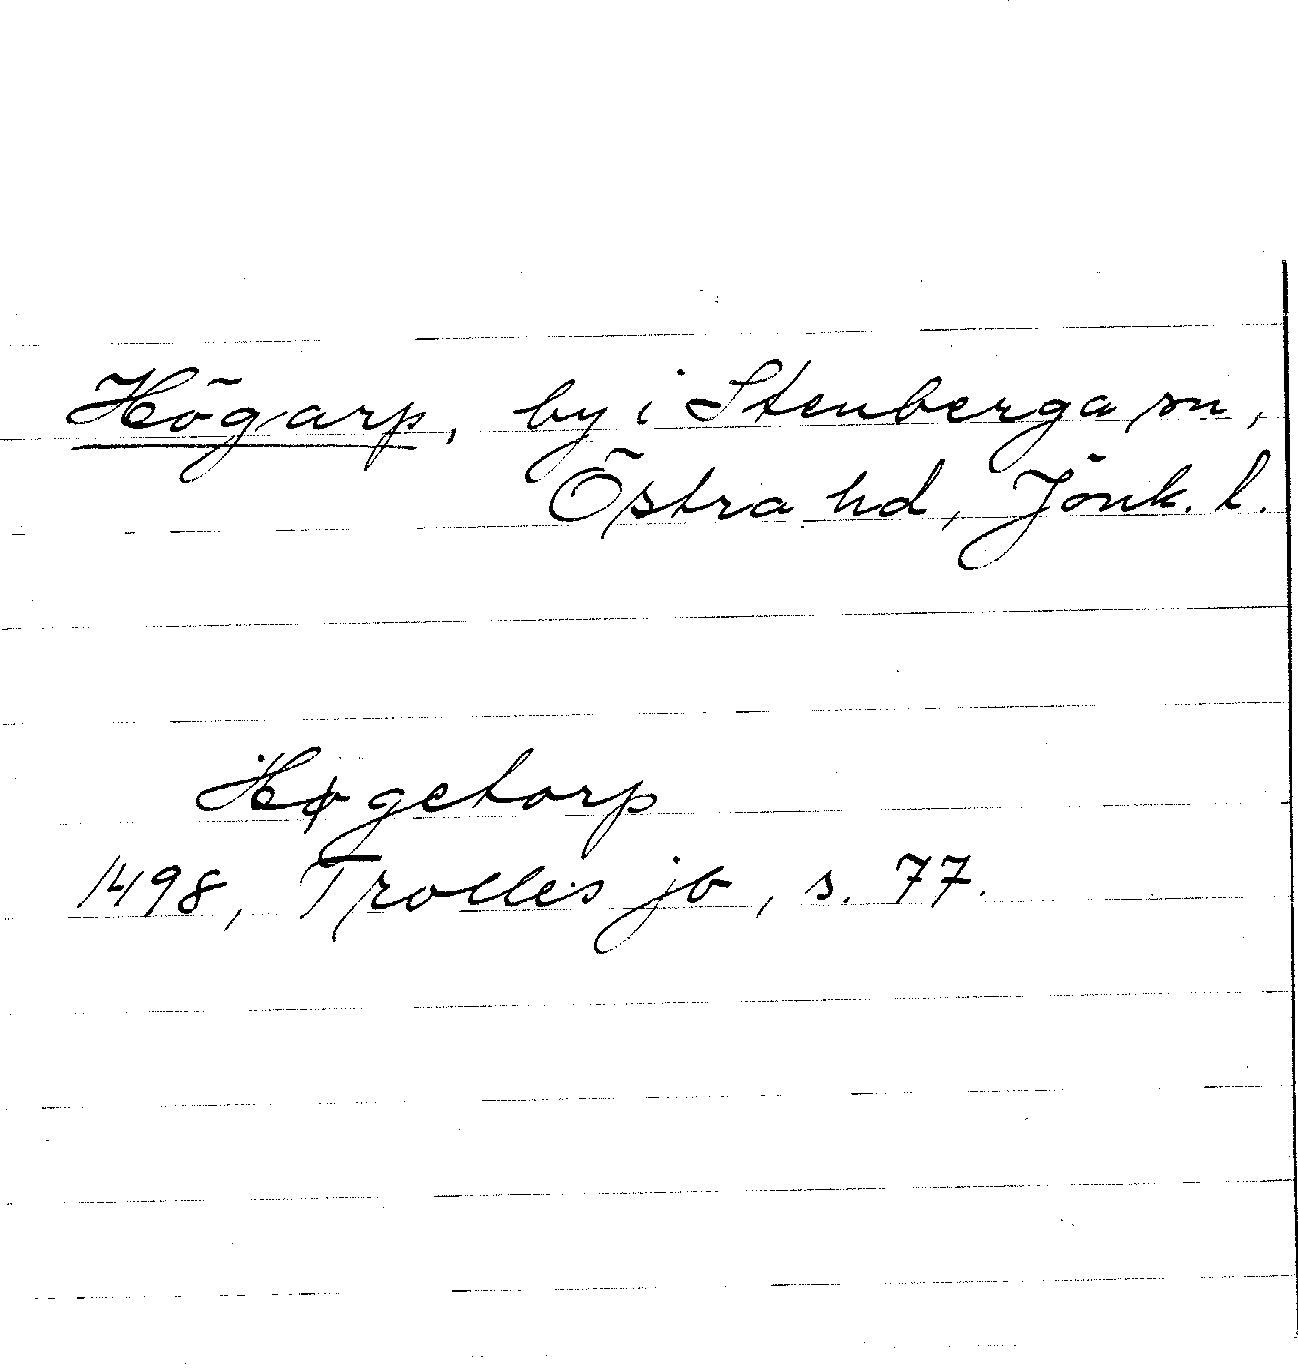 Högarp, by i Stenberga sn,
Östra hd, Jönk. l.
Høgetorp
1498, Trolles jb, s. 77.